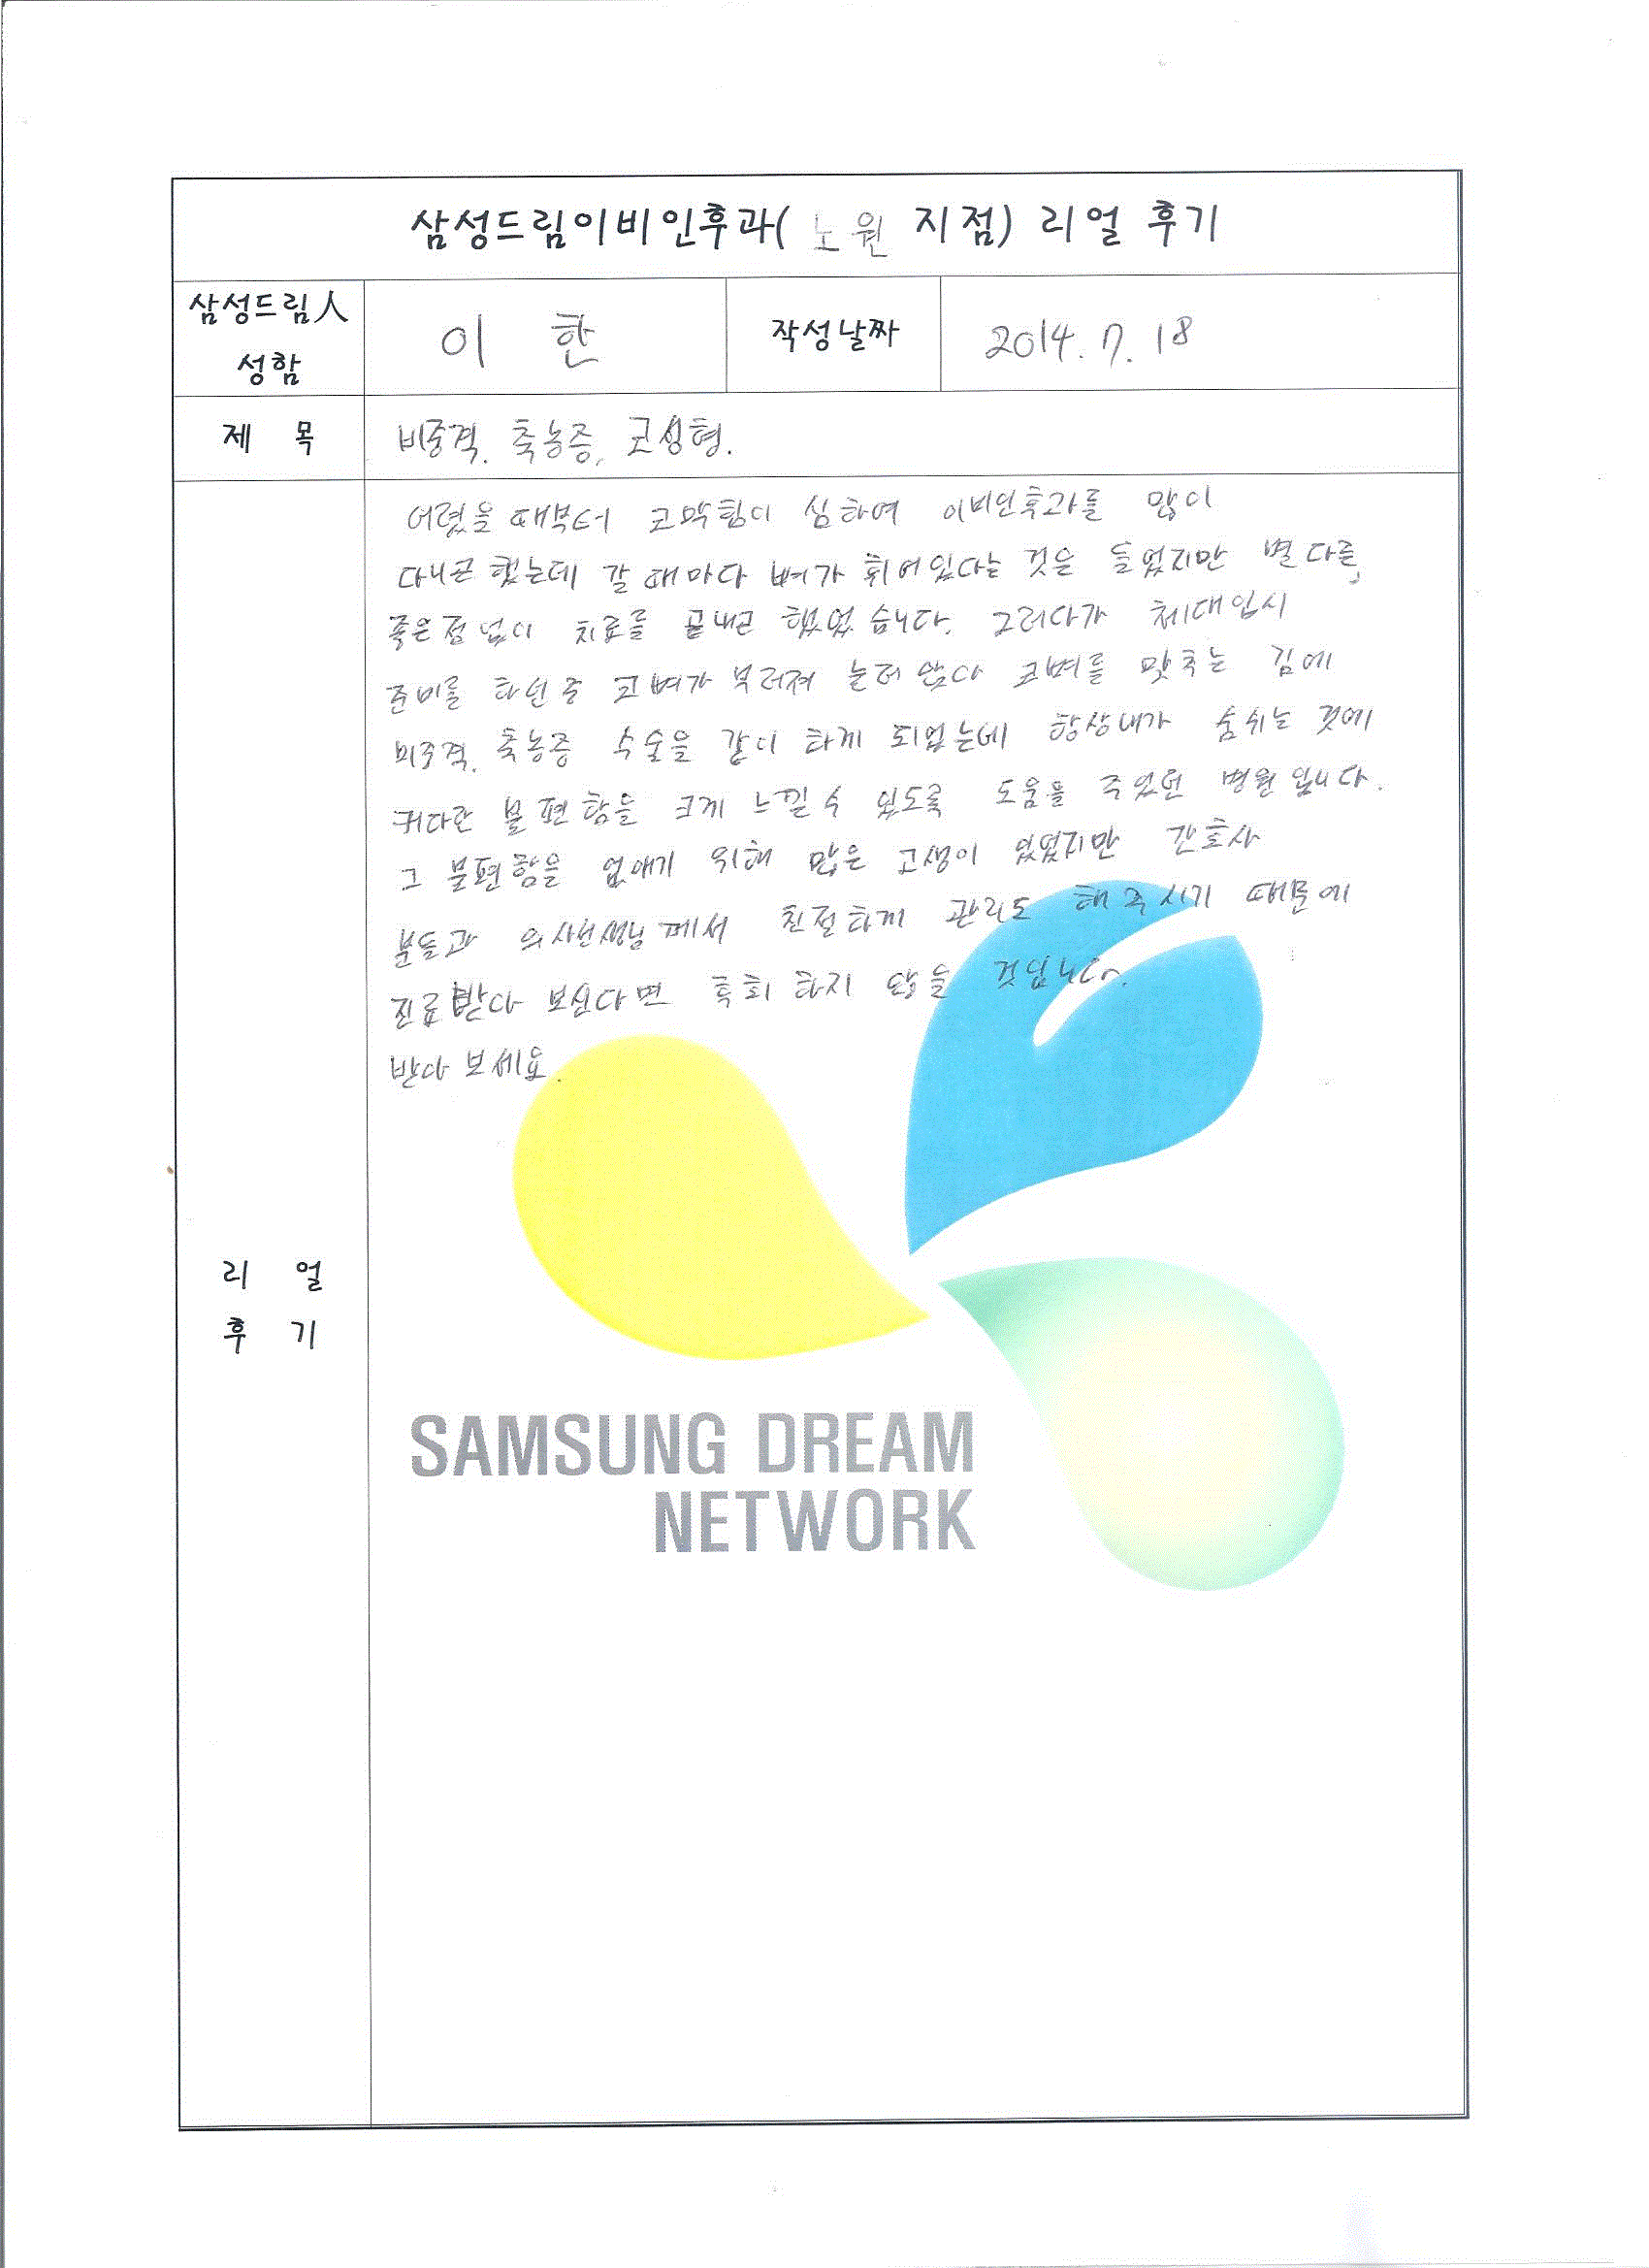 삼성드림이비인후과( 노원 지점) 리얼 후기
삼성드림人
성함
이 한
작성날짜
2014. 7. 18
제 목
비중격. 축농증, 코성형.
어렸을 때부터 코막힘이 심하여 이비인후과를 많이
다니곤 했는데 갈 때마다 뼈가 휘어있다는 것은 들었지만 별 다른
좋은점 없이 치료를 끝내곤 했었습니다. 그러다가 체대입시
준비를 하던 중 코뼈가 부러져 눌려 앉아 코뼈를 맞추는 김에
비중격. 축농증 수술을 같이 하게 되었는데 항상내가 숨쉬는 것에
커다란 불편함을 크게 느낄 수 있도록 도움을 주었던 병원입니다.
그 불편함을 없애기 위해 많은 고생이 있었지만 간호사
분들과 의사선생님께서 친절하게 관리도 해주시기 때문에
진료받아 보신다면 후회 하지 않을 것입니다.
받아 보세요.
리 얼
후 기
SAMSUNG DREAM
NETWORK